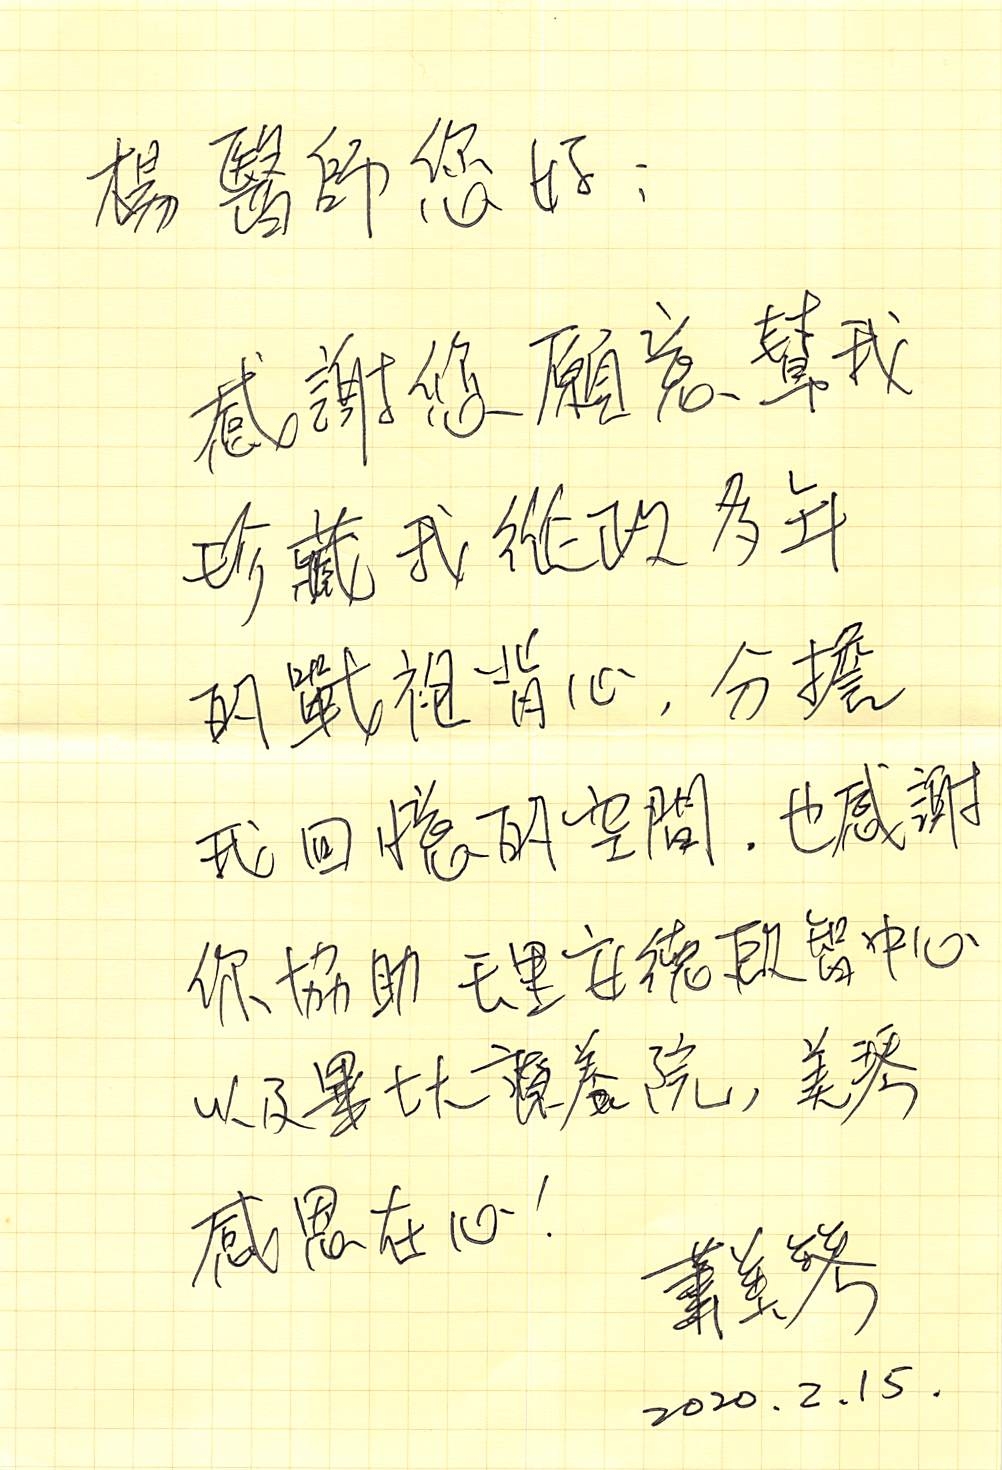 楊醫師您好：
感謝您願意幫我
珍藏我從政多年
的戰袍背心，分擔
我回憶的空間．也感謝
你協助玉里安德啟智中心
以及畢士大教養院，美琴
感恩在心！
蕭美琴
2020.2.15.